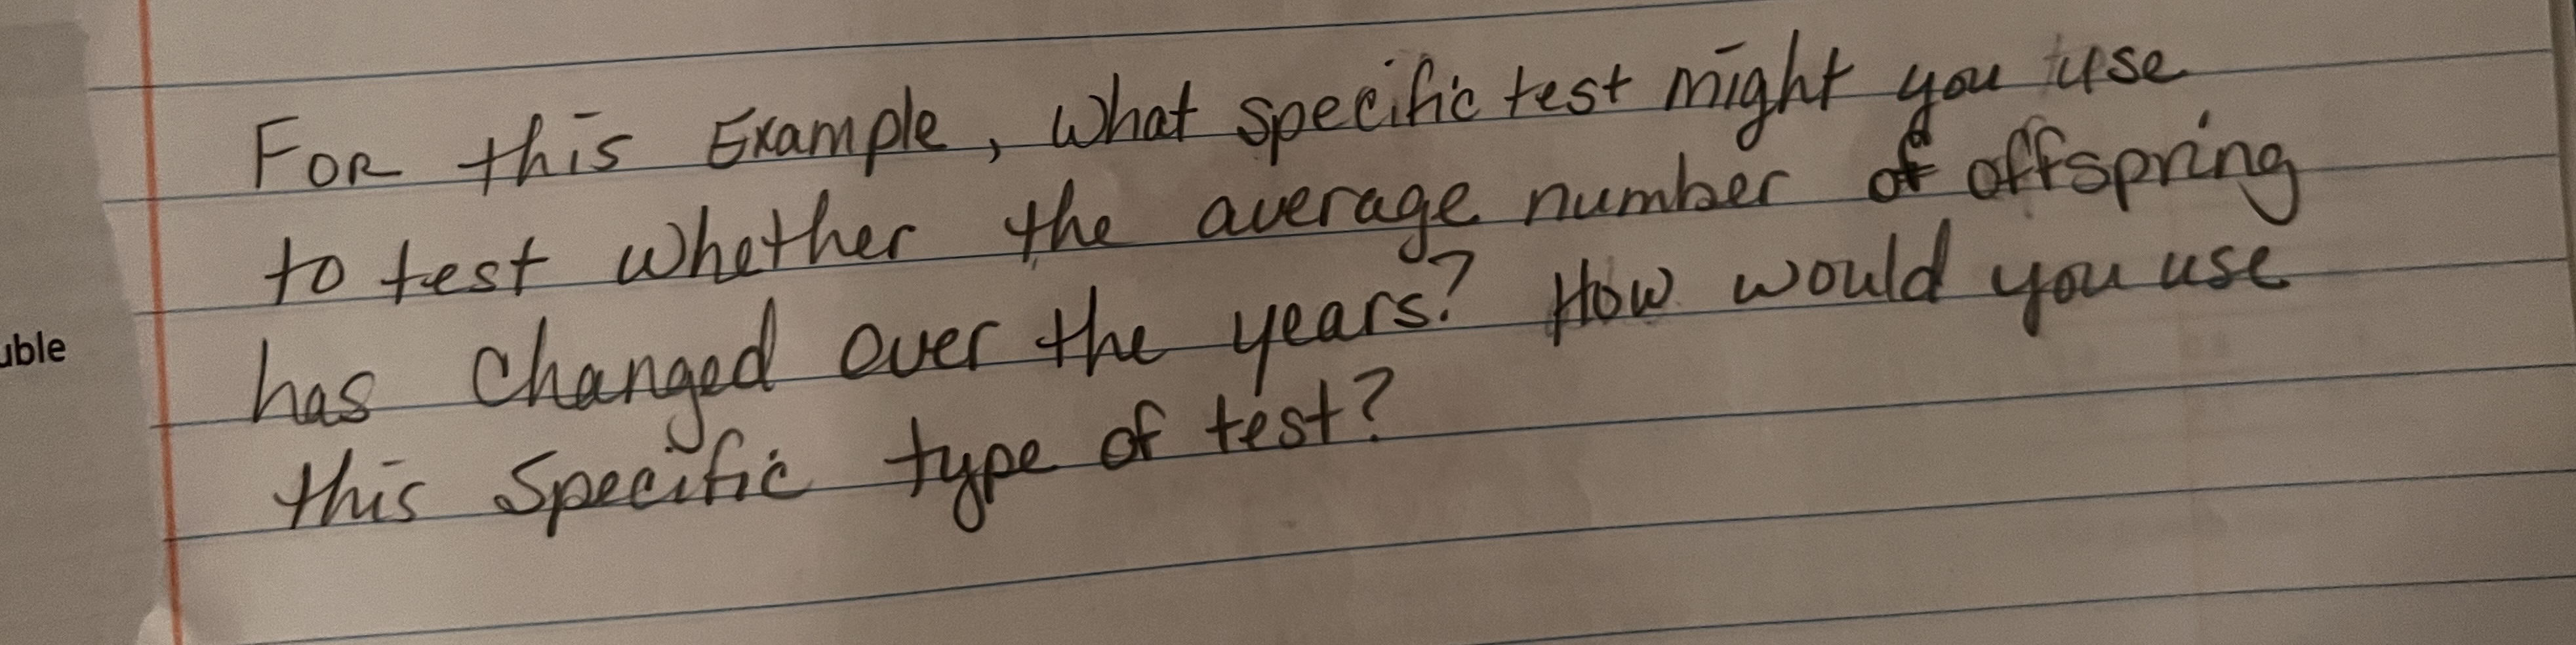 For this Example, what specific test might you use
to test whether the average number of offspring
has changed over the years? How would you use
uble
this specific type of test?